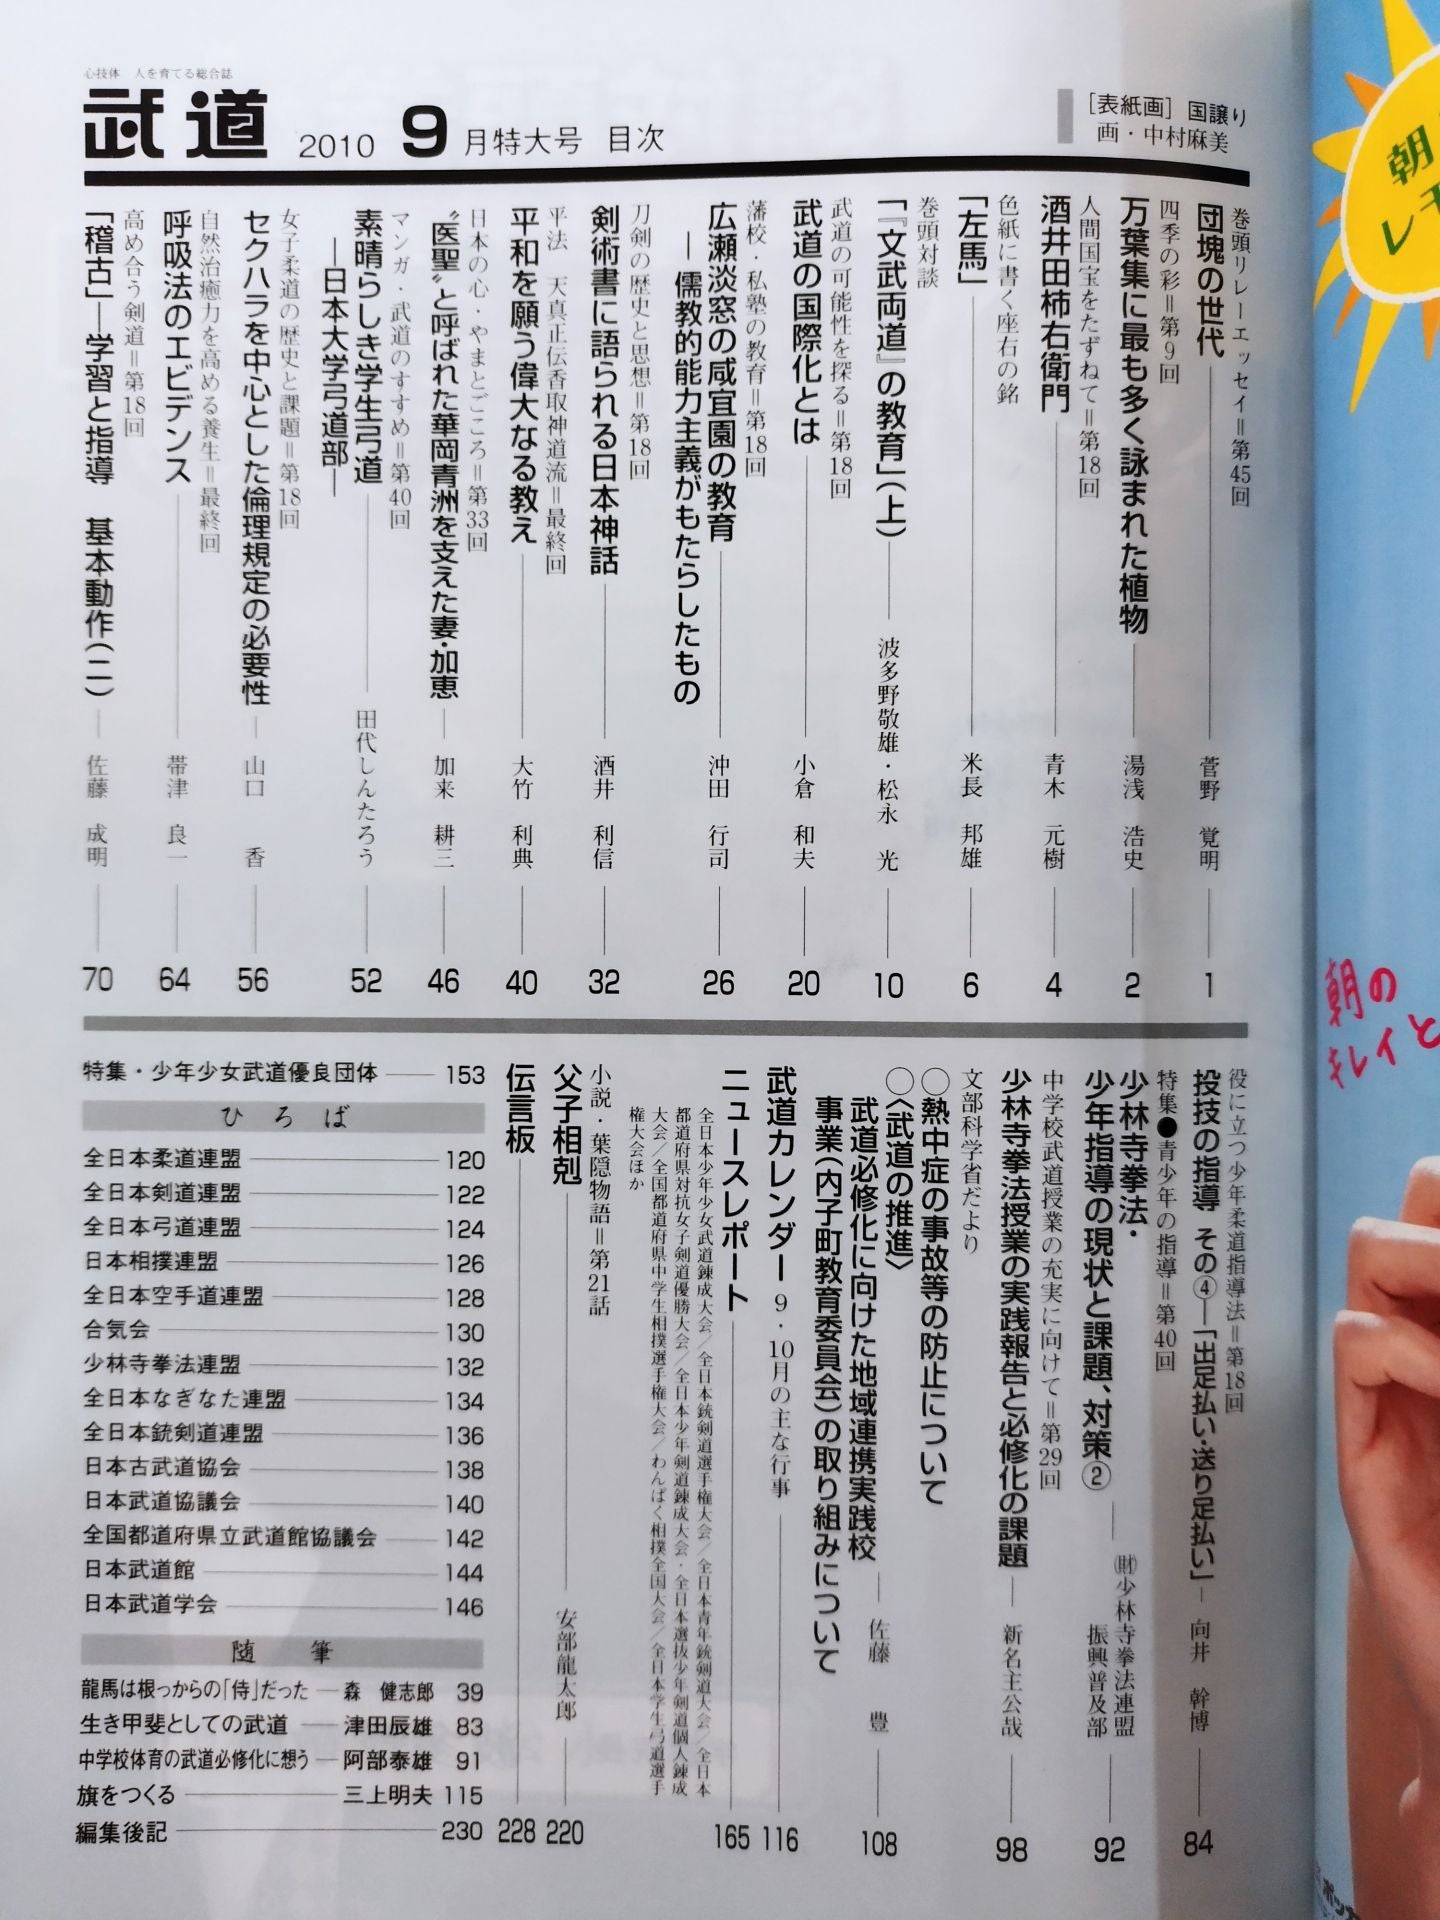 心技体 人を育てる総合誌
武道 2010 9月特大号 目次
［表紙画］国譲り
画・中村麻美
巻頭リレーエッセイ＝第45回
団塊の世代 菅野 覚明 1
四季の彩＝第9回
万葉集に最も多く詠まれた植物 湯浅 浩史 2
人間国宝をたずねて＝第18回
酒井田柿右衛門 青木 元樹 4
色紙に書く座右の銘
「左馬」 米長 邦雄 6
巻頭対談
「『文武両道』の教育」（上） 波多野敬雄・松永 光 10
武道の可能性を探る＝第18回
武道の国際化とは 小倉 和夫 20
藩校・私塾の教育＝第18回
広瀬淡窓の咸宜園の教育 沖田 行司 26
―儒教的能力主義がもたらしたもの
刀剣の歴史と思想＝第18回
剣術書に語られる日本神話 酒井 利信 32
平法 天真正伝香取神道流＝最終回
平和を願う偉大なる教え 大竹 利典 40
日本の心・やまとごころ＝第33回
〝医聖〟と呼ばれた華岡青洲を支えた妻・加恵 加来 耕三 46
マンガ・武道のすすめ＝第40回
素晴らしき学生弓道 田代しんたろう 52
―日本大学弓道部―
女子柔道の歴史と課題＝第18回
セクハラを中心とした倫理規定の必要性 山口 香 56
自然治癒力を高める養生＝最終回
呼吸法のエビデンス 帯津 良一 64
高め合う剣道＝第18回
「稽古」―学習と指導 基本動作（二） 佐藤 成明 70
役に立つ少年柔道指導法＝第18回
投技の指導 その④―「出足払い・送り足払い」 向井 幹博 84
特集●青少年の指導＝第40回
少林寺拳法・
少年指導の現状と課題、対策② ㈶少林寺拳法連盟
振興普及部 92
中学校武道授業の充実に向けて＝第29回
少林寺拳法授業の実践報告と必修化の課題 新名主公哉 98
文部科学省だより
○熱中症の事故等の防止について
○〈武道の推進〉
武道必修化に向けた地域連携実践校 佐藤 豊 108
事業（内子町教育委員会）の取り組みについて
武道カレンダー 9・10月の主な行事 116
ニュースレポート 165
全日本少年少女武道錬成大会／全日本銃剣道選手権大会／全日本青年銃剣道大会／全日本
都道府県対抗女子剣道優勝大会／全日本少年剣道錬成大会・全日本選抜少年剣道個人錬成
大会／全国都道府県中学生相撲選手権大会／わんぱく相撲全国大会／全日本学生弓道選手
権大会ほか
小説・葉隠物語＝第21話
父子相剋 安部龍太郎 220
伝言板 228
特集・少年少女武道優良団体 153
ひろば
全日本柔道連盟 120
全日本剣道連盟 122
全日本弓道連盟 124
日本相撲連盟 126
全日本空手道連盟 128
合気会 130
少林寺拳法連盟 132
全日本なぎなた連盟 134
全日本銃剣道連盟 136
日本古武道協会 138
日本武道協議会 140
全国都道府県立武道館協議会 142
日本武道館 144
日本武道学会 146
随筆
龍馬は根っからの「侍」だった 森 健志郎 39
生き甲斐としての武道 津田辰雄 83
中学校体育の武道必修化に想う 阿部泰雄 91
旗をつくる 三上明夫 115
編集後記 230
朝
レモ
朝の
キレイと